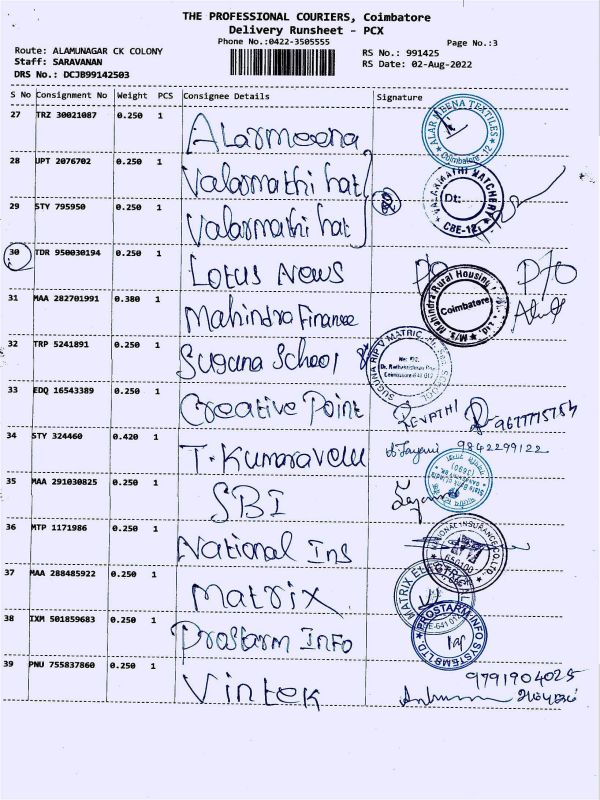 THE PROFESSIONAL COURIERS, Coimbatore
Delivery Runsheet - PCX
Phone No.:0422-3505555
Page No.:3
Route: ALAMUNAGAR CK COLONY
RS No.: 991425
Staff: SARAVANAN
RS Date: 02-Aug-2022
DRS No.: DCJB99142503
S No Consignment No Weight PCS Consignee Details Signature
27 TRZ 30021087 0.250 1 Alarmeena
ALAR MEENA TEXTILES
Coimbatore-12
28 UPT 2076702 0.250 1 Valarmathi hat
VALARMATHI HATCHERY
Dt:
CBE-12
29 STY 795950 0.250 1 Valarmathi hat
30 TDR 950030194 0.250 1 Lotus News D/O
31 MAA 282701991 0.380 1 Mahindra Finance
M/s. Mahindra Rural Housing
Coimbatore
32 TRP 5241891 0.250 1 Suguna School
SUGUNA RIP V MATRIC. SCHOOL
33 EDQ 16543389 0.250 1 Creative Point REVATHI 9677775757
34 STY 324460 0.420 1 T. Kumaravelu Jayani 9842299122
35 MAA 291030825 0.250 1 SBI
State Bank of India
36 MTP 1171986 0.250 1 National Ins
INSURANCE CO.LTD.
37 MAA 288485922 0.250 1 Matrix
MATRIX
38 IXM 501859683 0.250 1 Prostarm Info
PROSTARM INFO SYSTEMS LTD
39 PNU 755837860 0.250 1 Vintek 9791904025